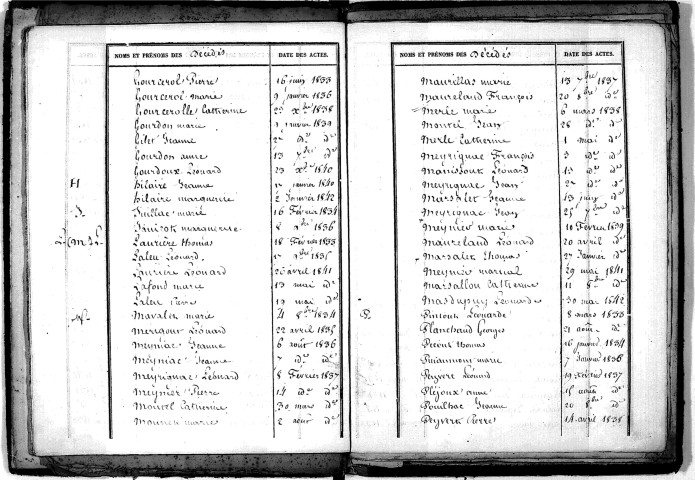 NOMS ET PRÉNOMS DES Décédés DATE DES ACTES.
Gourcerol Pierre 16 juin 1833
Gourcerol marie 9 janvier 1836
Gourcerolle Catherine 1838
Gourdon marie 9 janvier 1839
Jeanne do do
Gourdon anne 13 7bre do
Gourdoux Léonard 23 xbre 1840
H hilaire Jeanne janvier 1840
hilaire marguerite 2 Janvier 1842
J. Juillac marie 16 Février 1834
marguerite 8 1836
Laurière thomas 18 Février 1833
Laleu Léonard 1835
Laurière Léonard avril 1841
Lafond marie 13 mai do
Laleu Pierre 19 mai do
M. Mavaleix marie 4 8bre 1834
Mergout Léonard 22 avril 1835
Meyniac Jeanne 6 août 1836
Meyniac Jeanne 7 do do
Meyrignac Léonard 8 Février 1837
Meynier Pierre 14 do do
Catherine 30 mars do
marie 2 août do
NOMS ET PRÉNOMS DES Décédés DATE DES ACTES.
Maurillas marie 13 7bre 1837
Maureland François 20 8bre do
Merle marie 6 mars 1838
Jean 28 do do
Merle Catherine 1 mai do
Meyrignac François 3 do do
Léonard 13 do do
Meyrignac Jean do do
Jeanne 13 juin do
Meyrignac Jean 25 7bre do
Meynier marie 10 Février 1839
Maureland Léonard 20 avril do
Marsaleix thomas 27 Janvier do
Meynier martial 29 mai 1841
Marsallon Catherine 11 8bre do
Masdupuy Léonarde 30 mai 1842
P. Pintout Léonarde 8 mars 1833
Planchaud Georges 21 août do
thomas 16 janvier 1834
marie 7 Janvier 1836
Peyvere Léonard 19 Février 1837
Pléjoux anne 15 août do
Pouilhac Jeanne 20 8bre do
Peyvere Pierre 14 avril 1838